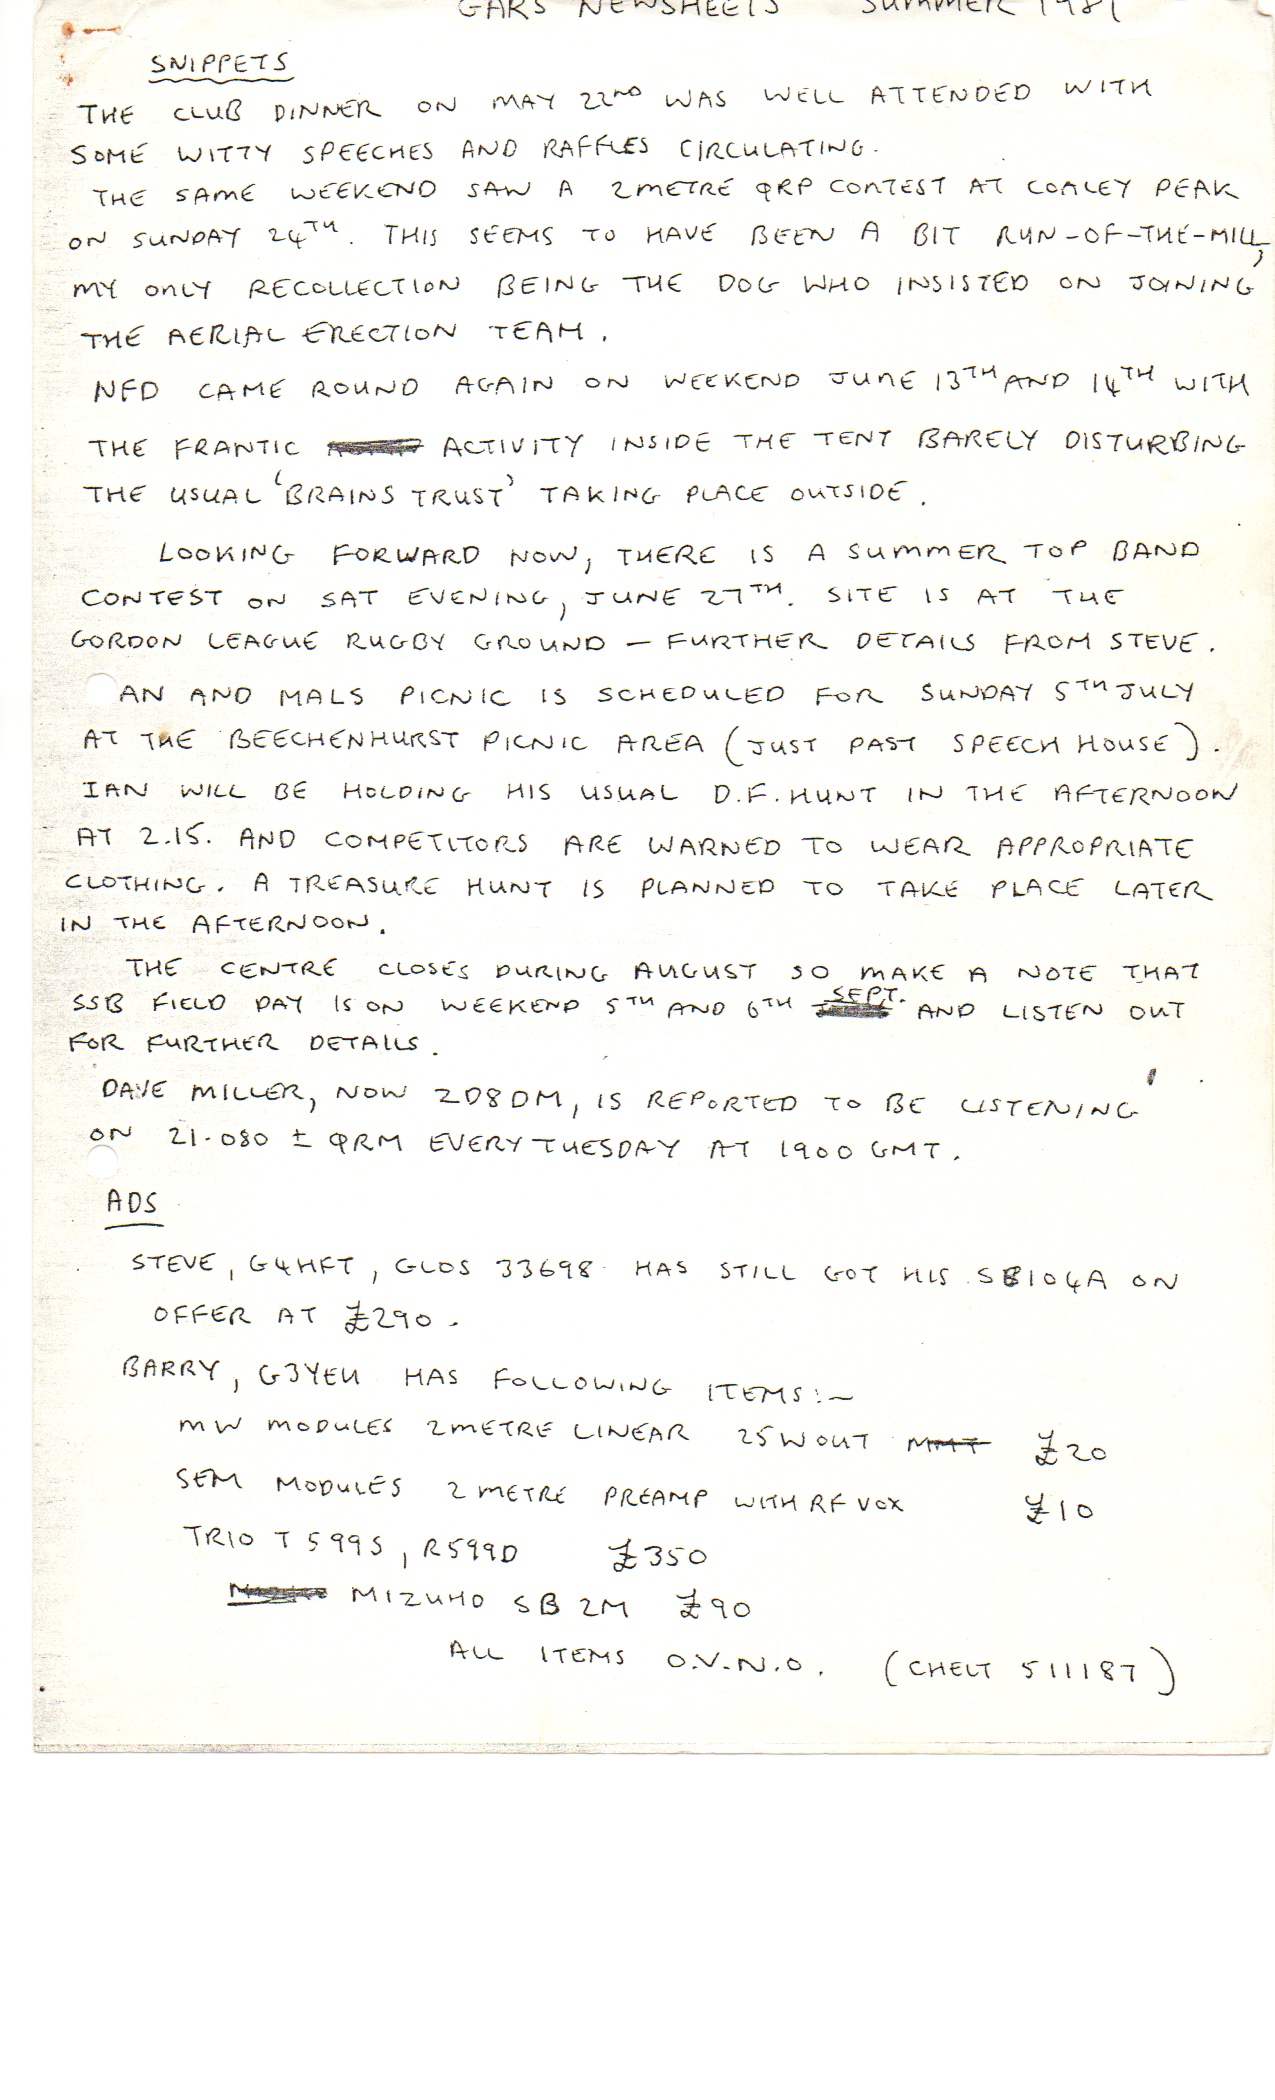 GARS NEWSHEETS SUMMER 1981
SNIPPETS
THE CLUB DINNER ON MAY 22ND WAS WELL ATTENDED WITH
SOME WITTY SPEECHES AND RAFFLES CIRCULATING.
THE SAME WEEKEND SAW A 2 METRE QRP CONTEST AT COALEY PEAK
ON SUNDAY 24TH. THIS SEEMS TO HAVE BEEN A BIT RUN-OF-THE-MILL,
MY ONLY RECOLLECTION BEING THE DOG WHO INSISTED ON JOINING
THE AERIAL ERECTION TEAM.
NFD CAME ROUND AGAIN ON WEEKEND JUNE 13TH AND 14TH WITH
THE FRANTIC ACTIVITY INSIDE THE TENT BARELY DISTURBING
THE USUAL 'BRAINS TRUST' TAKING PLACE OUTSIDE.
LOOKING FORWARD NOW, THERE IS A SUMMER TOP BAND
CONTEST ON SAT EVENING, JUNE 27TH. SITE IS AT THE
GORDON LEAGUE RUGBY GROUND - FURTHER DETAILS FROM STEVE.
AN AND MALS PICNIC IS SCHEDULED FOR SUNDAY 5TH JULY
AT THE BEECHENHURST PICNIC AREA (JUST PAST SPEECH HOUSE).
IAN WILL BE HOLDING HIS USUAL D.F. HUNT IN THE AFTERNOON
AT 2.15. AND COMPETITORS ARE WARNED TO WEAR APPROPRIATE
CLOTHING. A TREASURE HUNT IS PLANNED TO TAKE PLACE LATER
IN THE AFTERNOON.
THE CENTRE CLOSES DURING AUGUST SO MAKE A NOTE THAT
SSB FIELD DAY IS ON WEEKEND 5TH AND 6TH SEPT. AND LISTEN OUT
FOR FURTHER DETAILS.
DAVE MILLER, NOW ZD8DM, IS REPORTED TO BE LISTENING
ON 21.080 ± QRM EVERY TUESDAY AT 1900 GMT.
ADS
STEVE, G4HFT, GLOS 33698 HAS STILL GOT HIS SB104A ON
OFFER AT £290.
BARRY, G3YEU HAS FOLLOWING ITEMS:-
MW MODULES 2 METRE LINEAR 25W OUT £20
SEM MODULES 2 METRE PREAMP WITH RF VOX £10
TRIO T599S, R599D £350
MIZUHO SB 2M £90
ALL ITEMS O.V.N.O. (CHELT 511187)